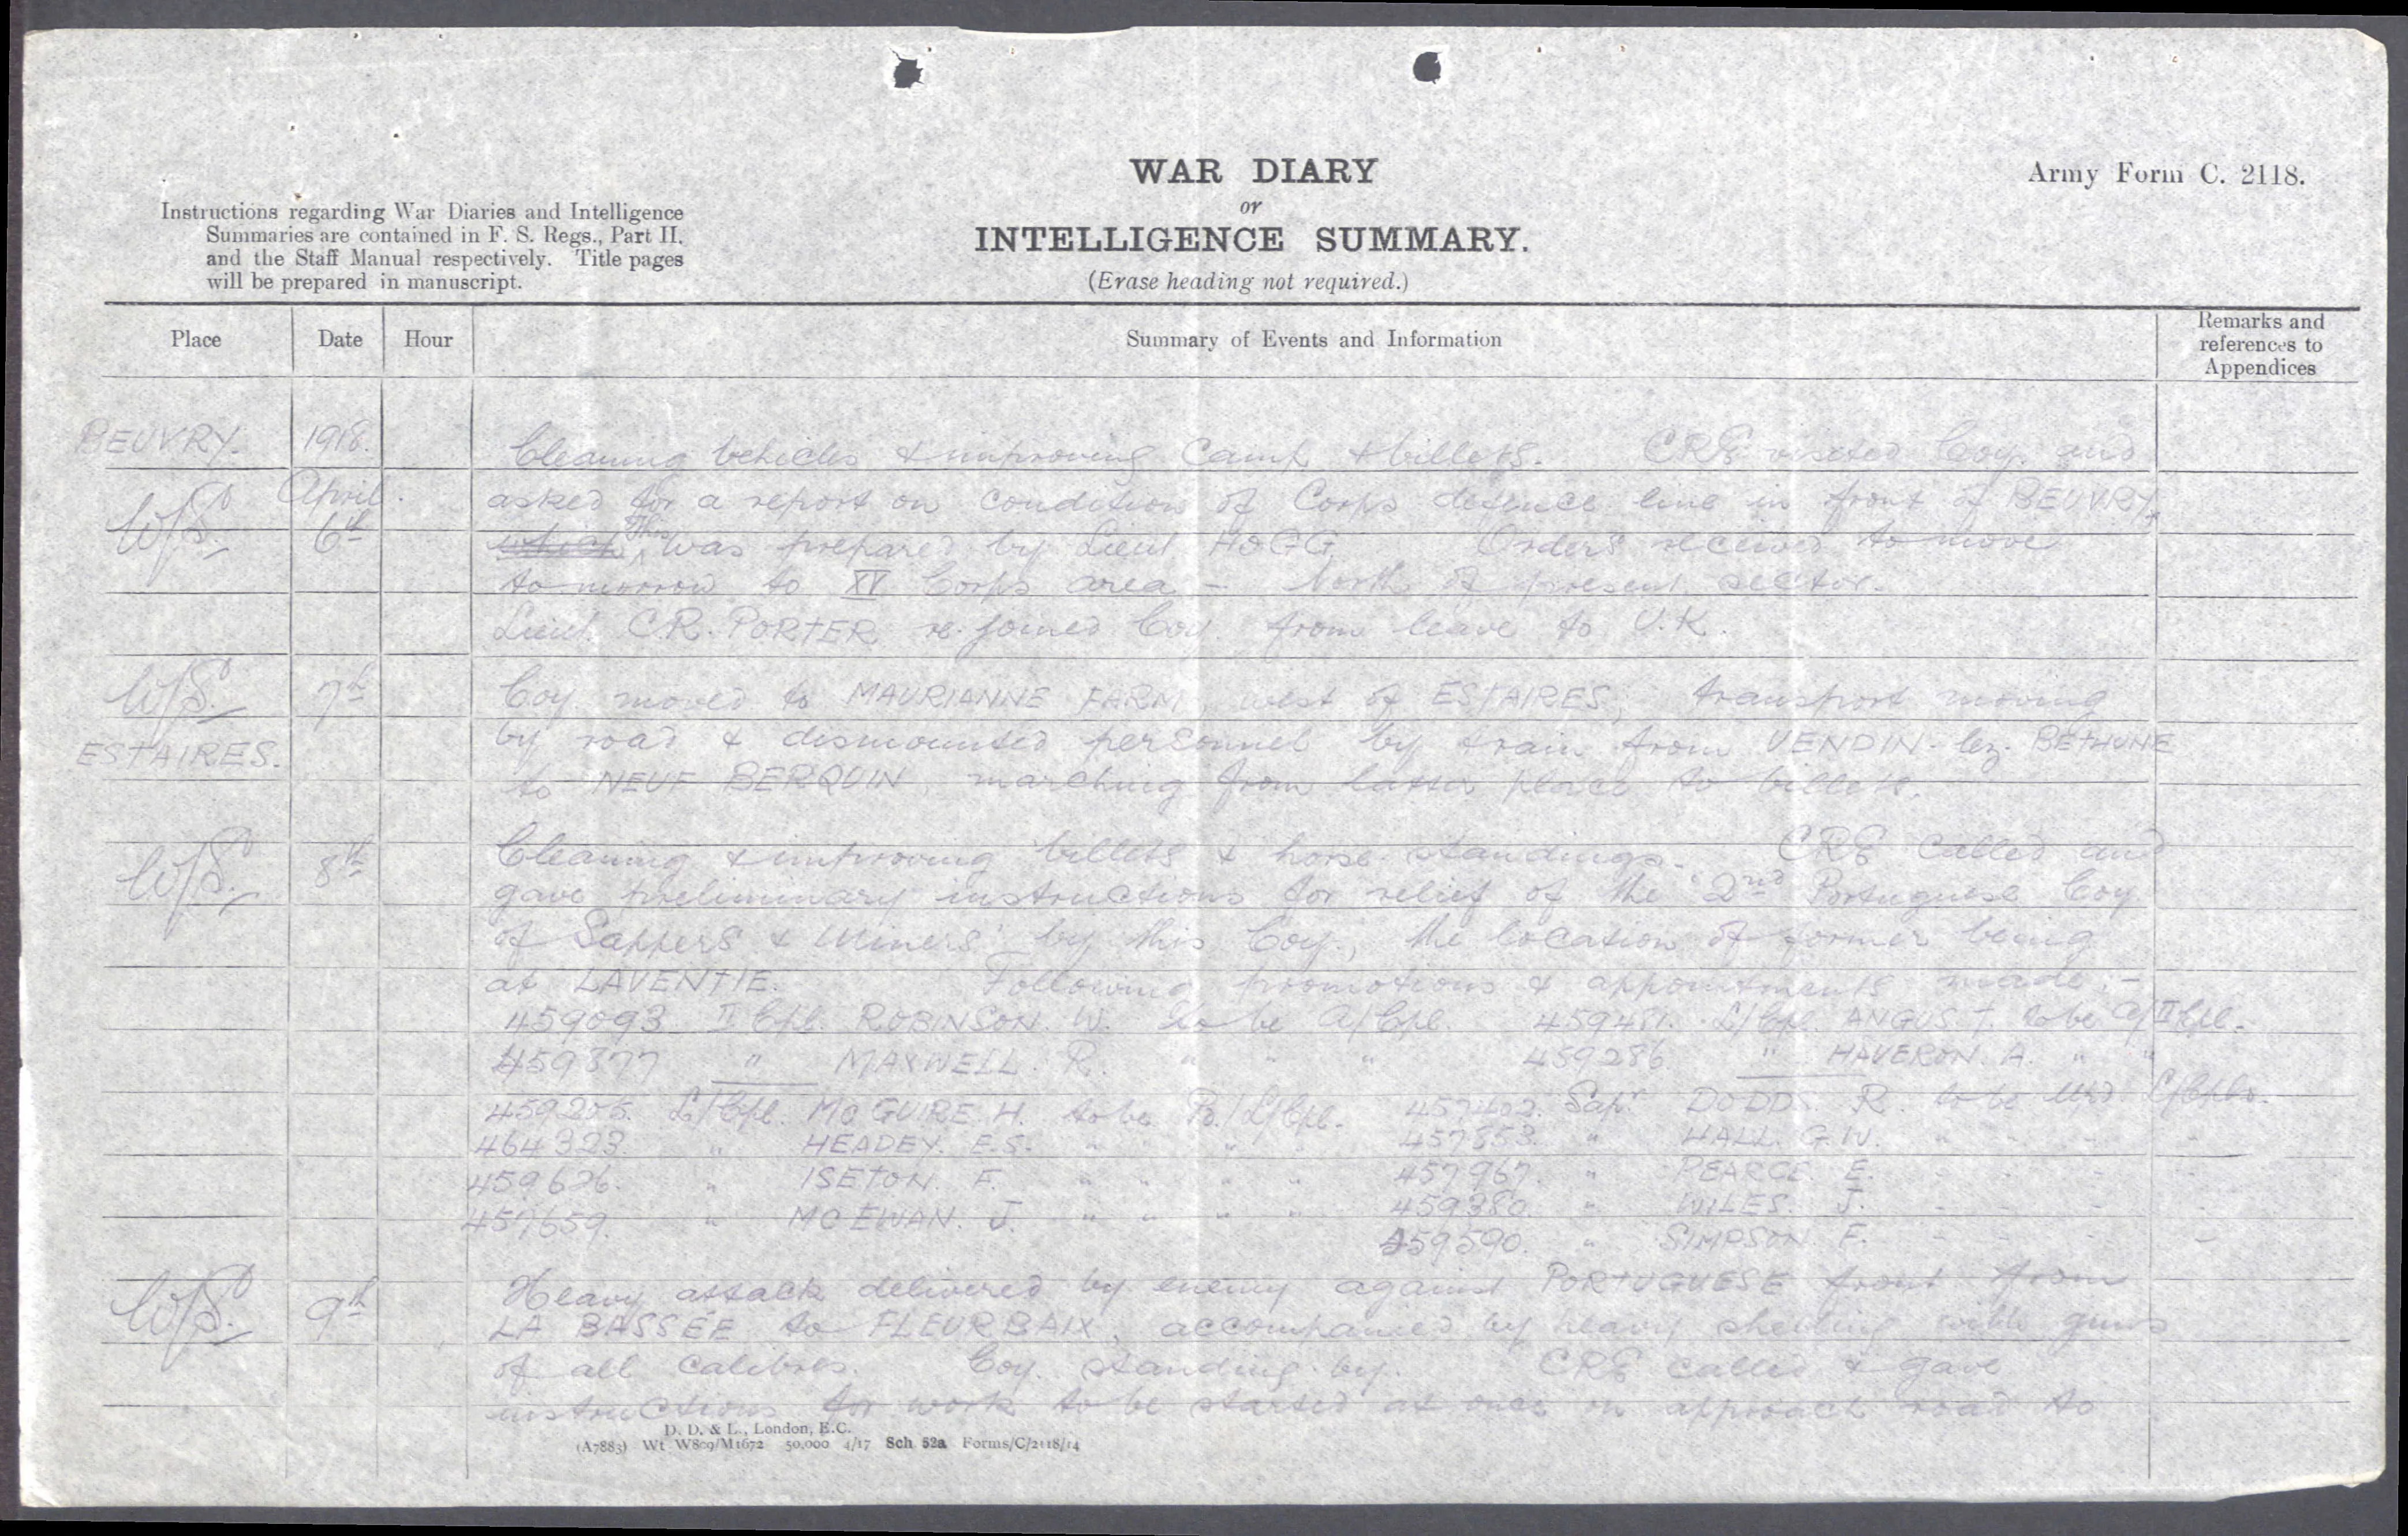 WAR DIARY
or
INTELLIGENCE SUMMARY.
(Erase heading not required.)
Army Form C. 2118.
Instructions regarding War Diaries and Intelligence
Summaries are contained in F. S. Regs., Part II.
and the Staff Manual respectively. Title pages
will be prepared in manuscript.
Place Date Hour Summary of Events and Information Remarks and references to Appendices
BEUVRY. 1918. Cleaning vehicles & improving camp & billets. CRE visited Coy. and
April. asked for a report on condition of Corps defence line in front of BEUVRY.
6th which This was prepared by Lieut HOGG. Orders received to move
tomorrow to XV Corps area - North of present sector.
Lieut. C.R. PORTER re-joined Coy. from leave to U.K.
7th Coy. moved to MAURIANNE FARM, west of ESTAIRES, transport moving
ESTAIRES. by road & dismounted personnel by train from VENDIN-lez-BETHUNE
to NEUF BERQUIN, marching from latter place to billets.
8th Cleaning & improving billets & horse standings. CRE called and
gave preliminary instructions for relief of the "2nd Portuguese Coy
of Sappers & Miners" by this Coy., the location of former being
at LAVENTIE. Following promotions & appointments made:-
459093 II Cpl. ROBINSON. W. to be A/Cpl. 459481. L/Cpl. ANGUS T. to be A/II Cpl.
459377 " MAXWELL. R. " " " 459286 " HAVERON. A. " "
459255. L/Cpl. MCGUIRE. H. to be Pd/L/Cpl. 457402. Sapr DODDS. R. to be L/Cpls.
464323. " HEADEY. E.S. " " " 457853. " HALL. G.W. " - - -
459626. " ISETON. F. " " " " 457967. " PEARCE. E. - - - -
457659. " MCEWAN. J. " " " " 459380. " WILES. J. - - - -
459590. " SIMPSON. F. - - - -
9th Heavy attack delivered by enemy against PORTUGUESE front from
LA BASSÉE to FLEURBAIX, accompanied by heavy shelling with guns
of all calibres. Coy. standing by. CRE called & gave
instructions for work to be started at once on approach road to
D. D. & L., London, E.C.
(A7883) Wt. W809/M1672 50,000 4/17 Sch 52a Forms/C/2118/14